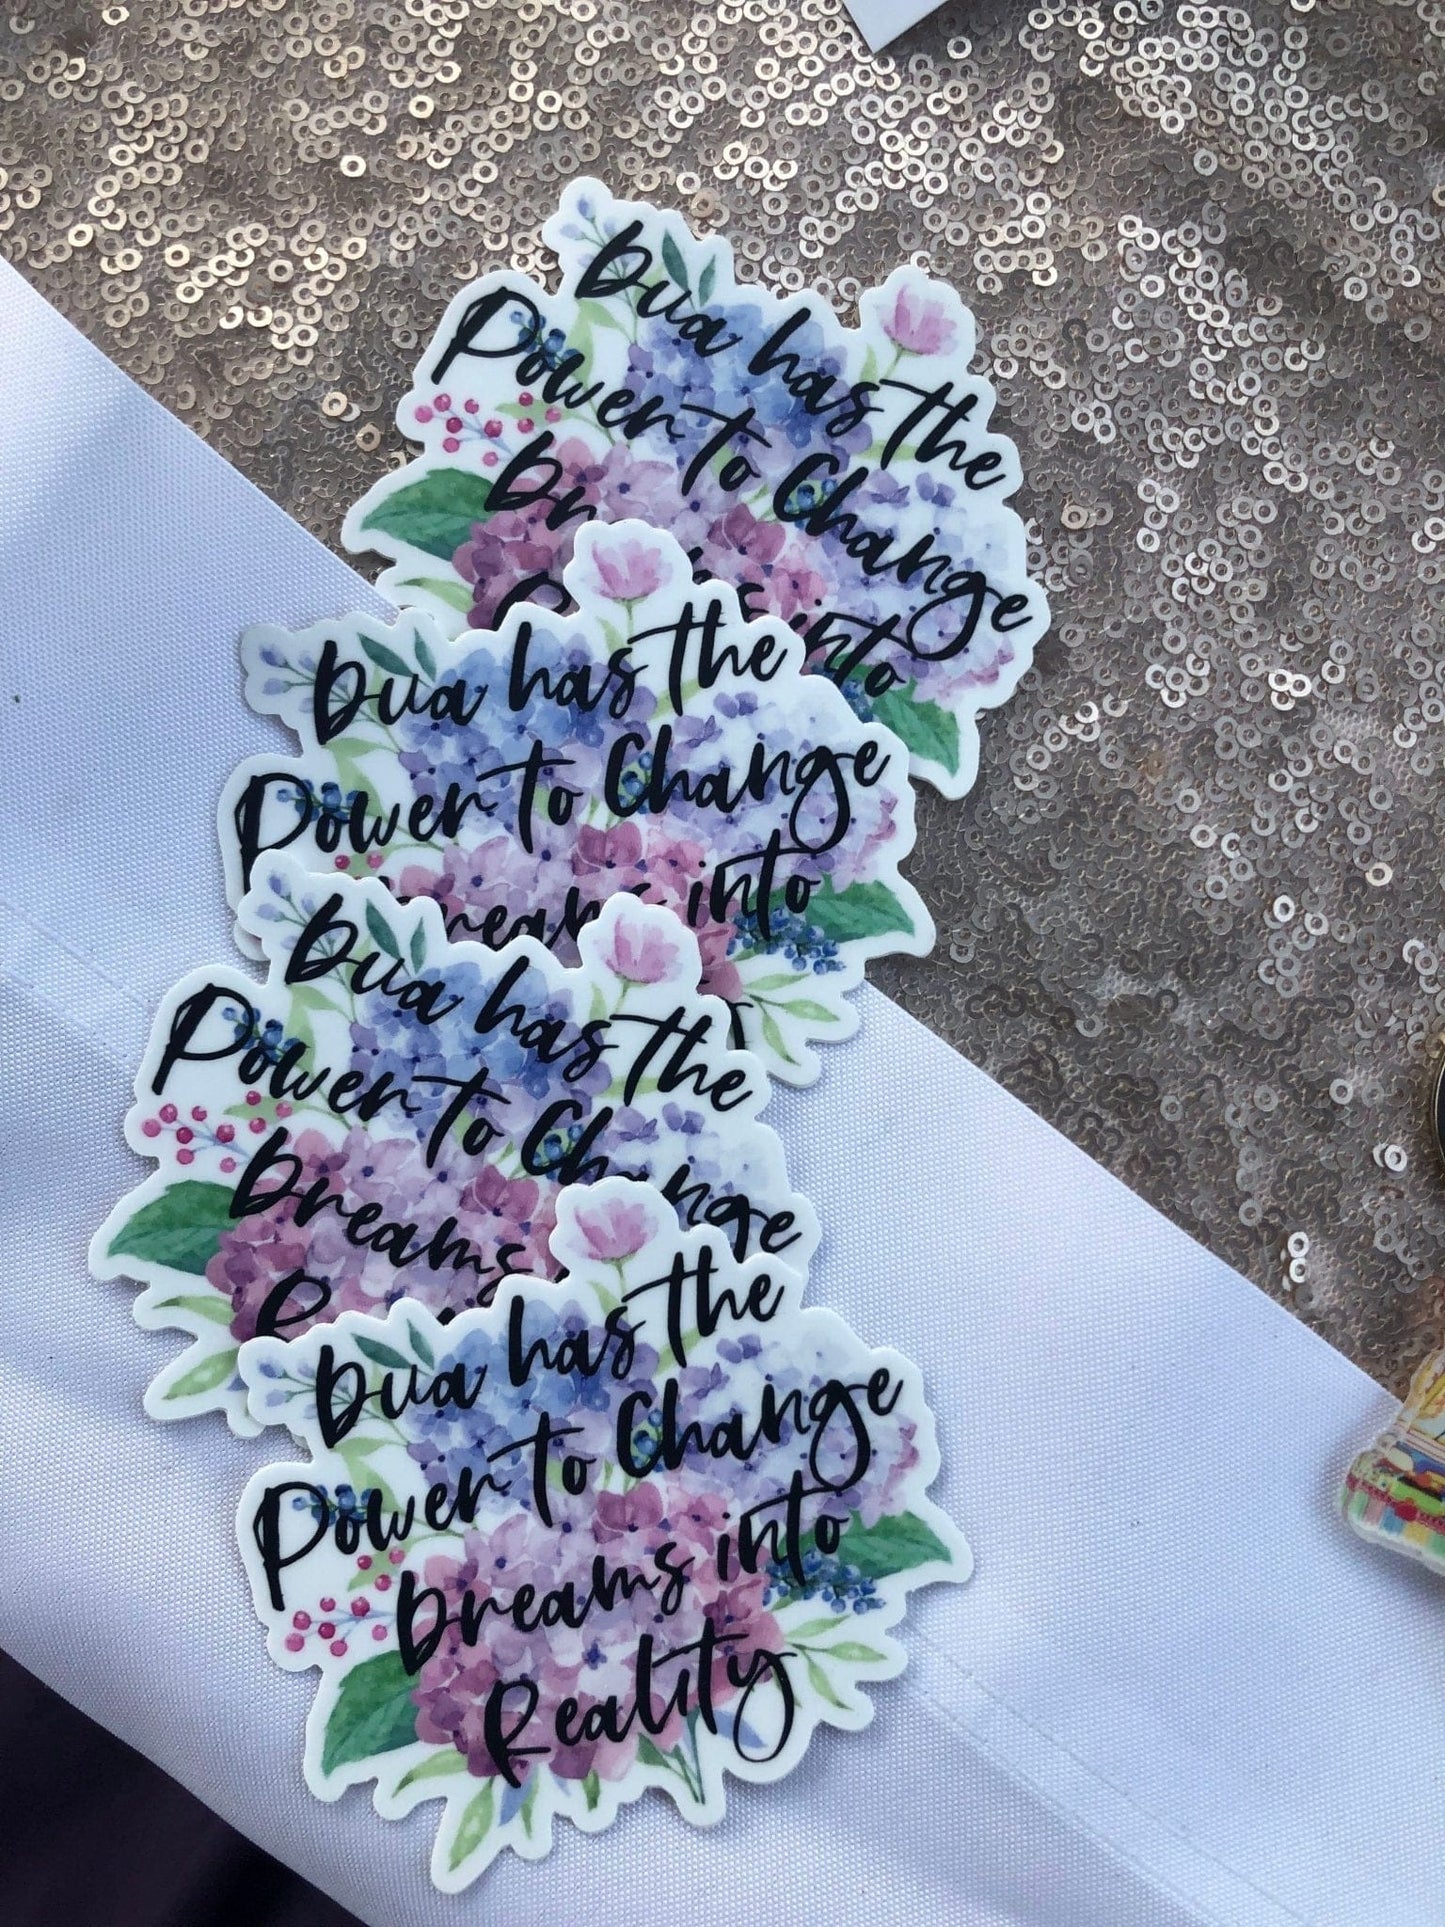 Dua has the
Power to Change
into
Dua has the
Power to Change
Dreams into
Dua has the
Power to Change
Dreams
Dua has the
Power to Change
Dreams into
Reality